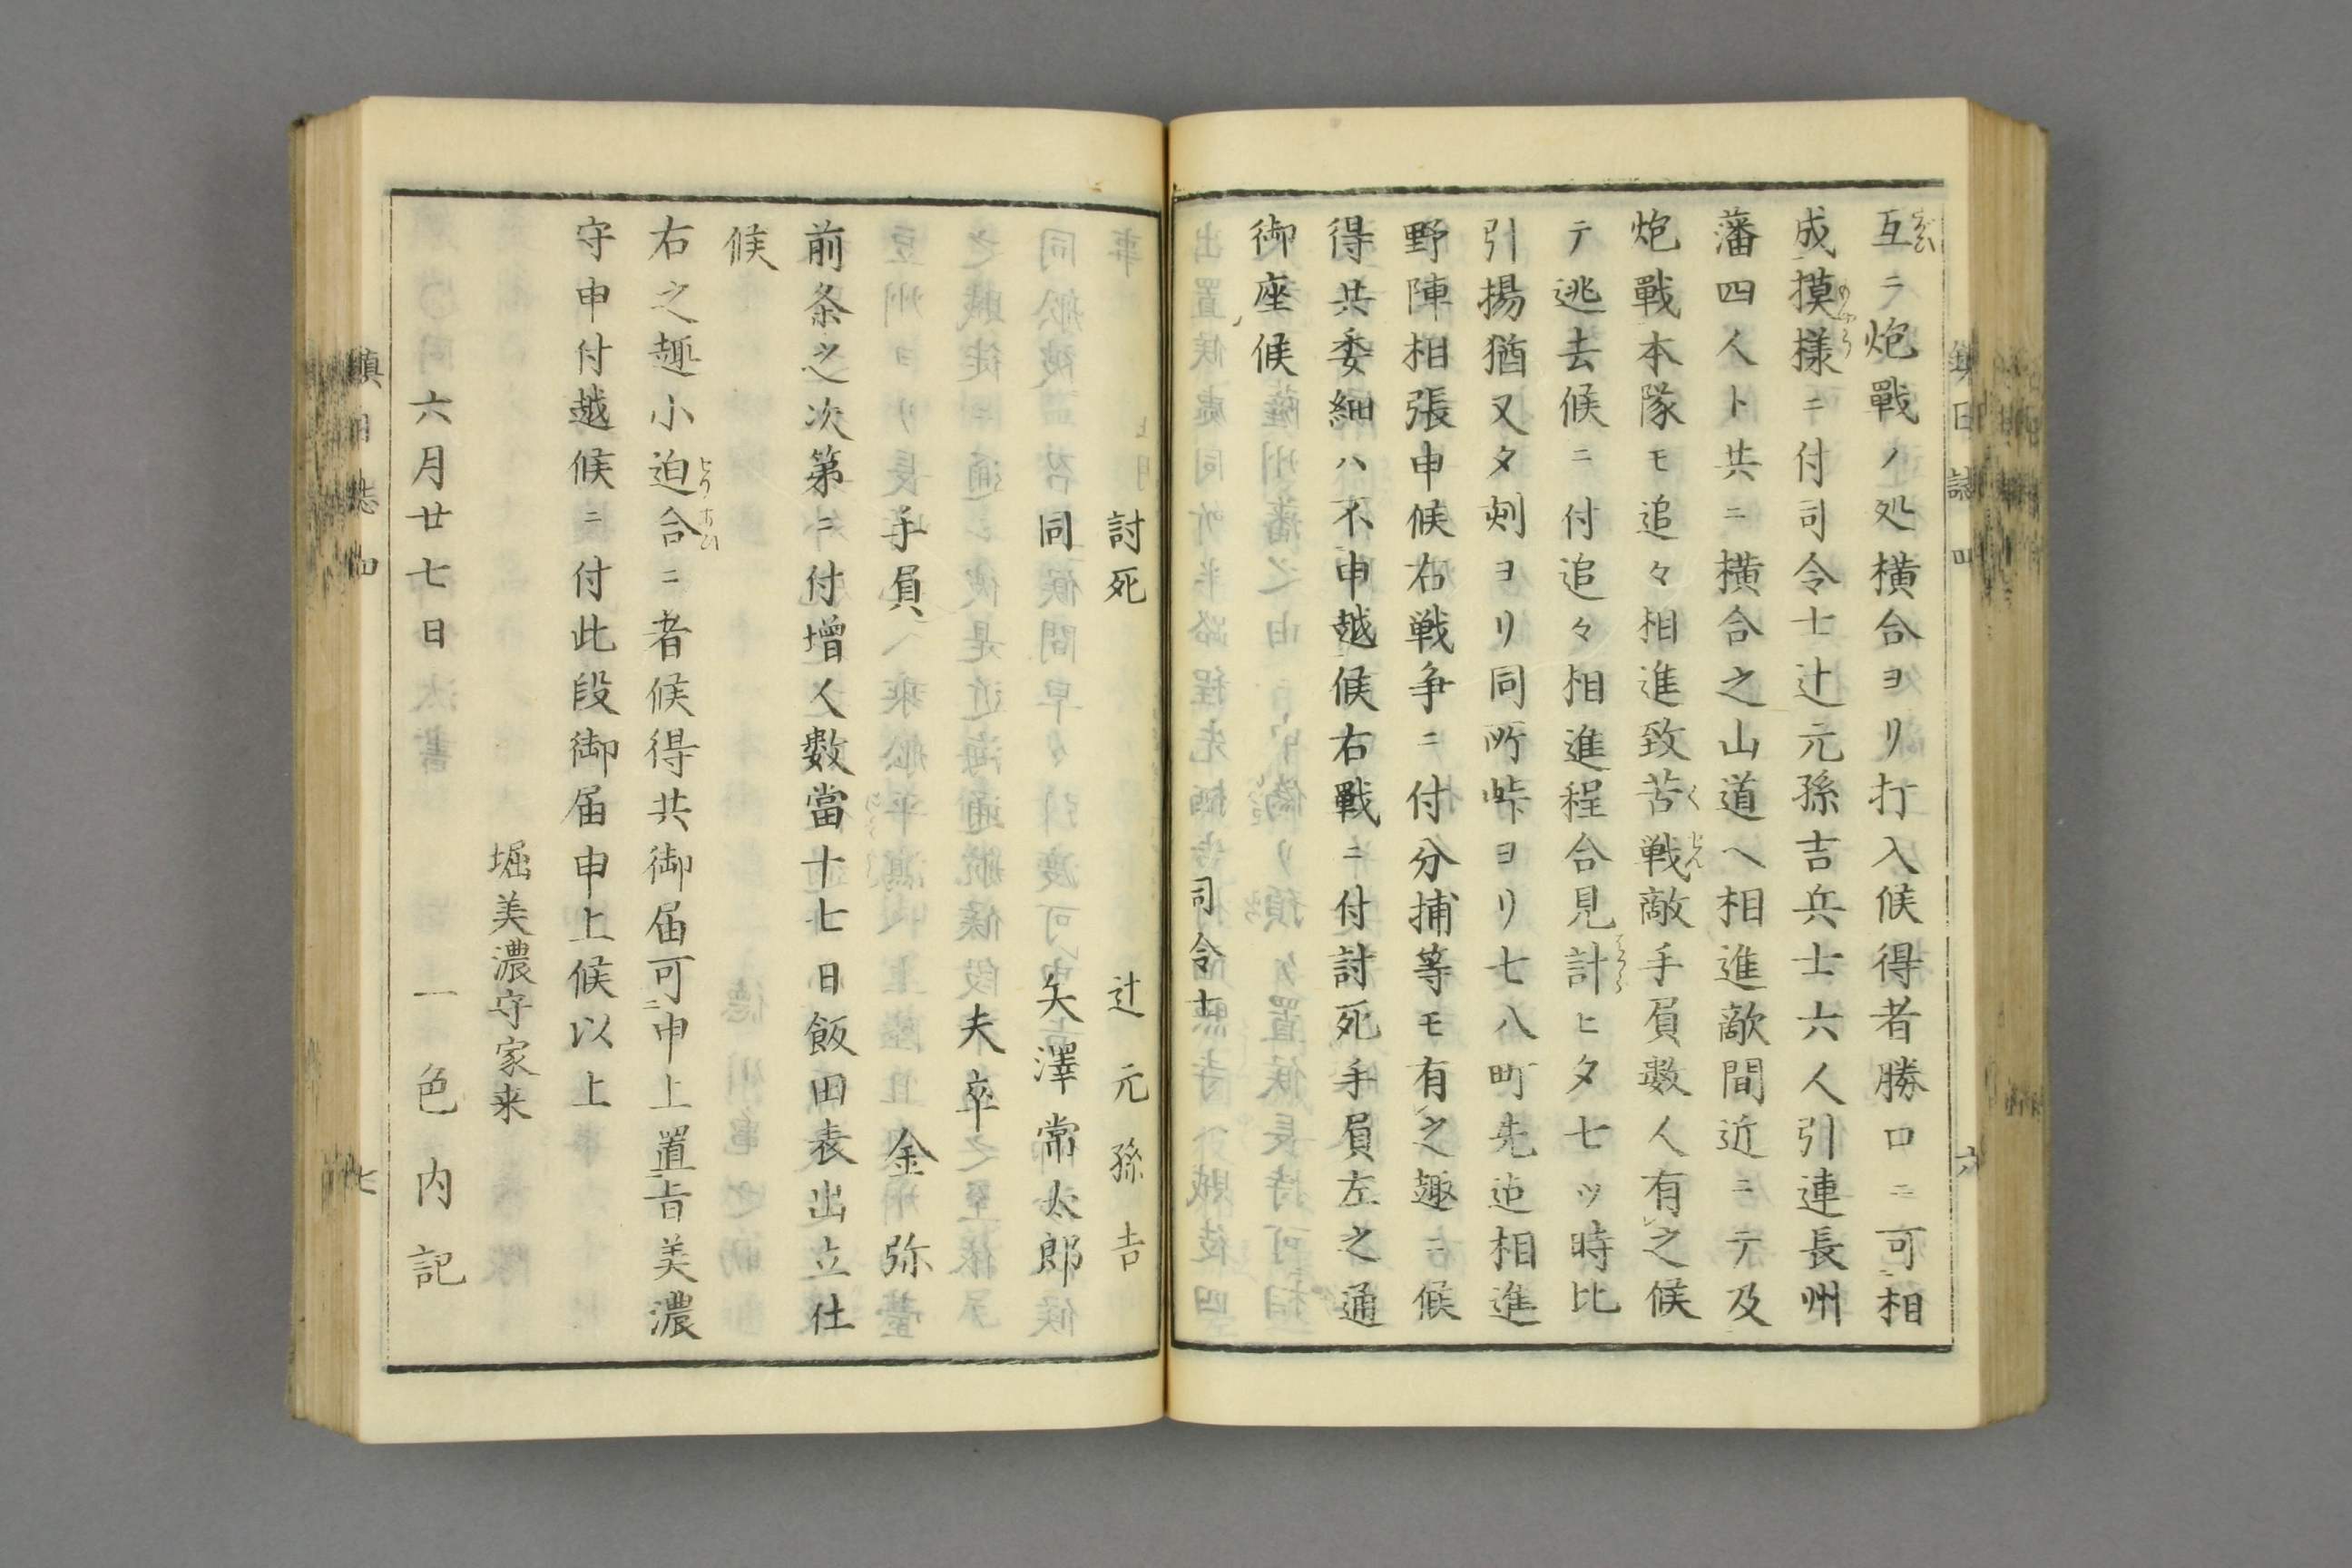 互ニ炮戰ノ処横合ヨリ打入候得者勝口ニ可相
成摸樣ニ付司令士辻元孫吉兵士六人引連長州
藩四人ト共ニ横合之山道ヘ相進敵間近ニテ及
炮戰本隊モ追々相進致苦戦敵手負數人有之候
テ逃去候ニ付追々相進程合見計ヒタ七ツ時比
引揚猶又夕刻ヨリ同所峠ヨリ七八町先迄相進
野陣相張申候右戦争ニ付分捕等モ有之趣ニ候
得共委細ハ不申越候右戰ニ付討死手負左之通
御座候
司令士
討死 辻元孫吉
同 矢澤常太郎
夫卒
手負 金弥
前条之次第ニ付増人數當十七日飯田表出立仕
候
右之趣小迫合ニ者候得共御届可申上置旨美濃
守申付越候ニ付此段御届申上候以上
堀美濃守家来
六月廿七日 一色内記
鎮日誌四
七
日誌四
六